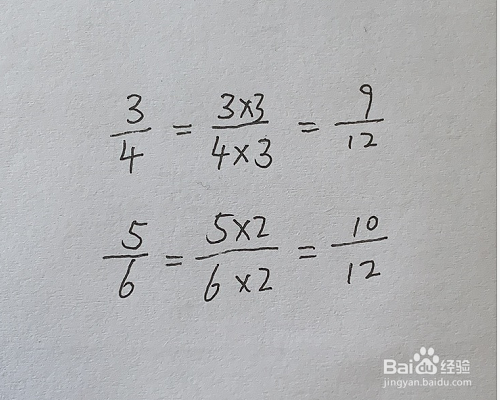 3/4 = 3×3/4×3 = 9/12
5/6 = 5×2/6×2 = 10/12
Baidu经验
jingyan.baidu.com